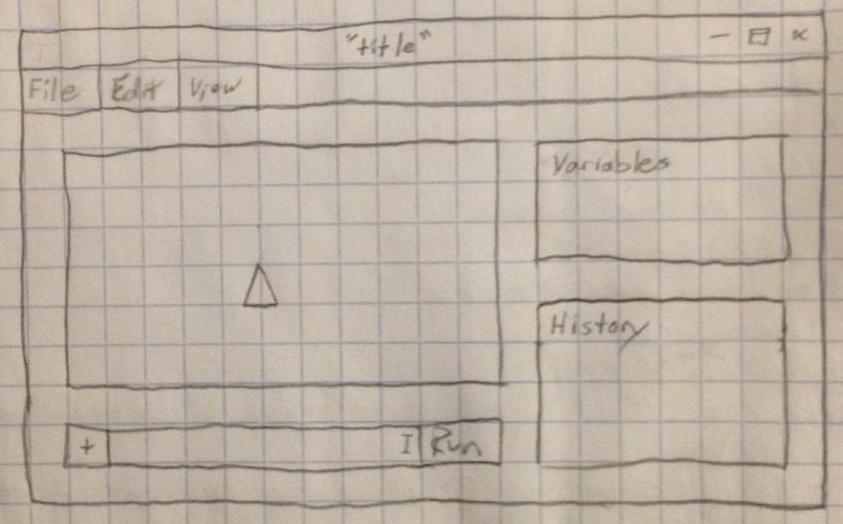 "title"
File Edit View
Variables
History
+ I Run